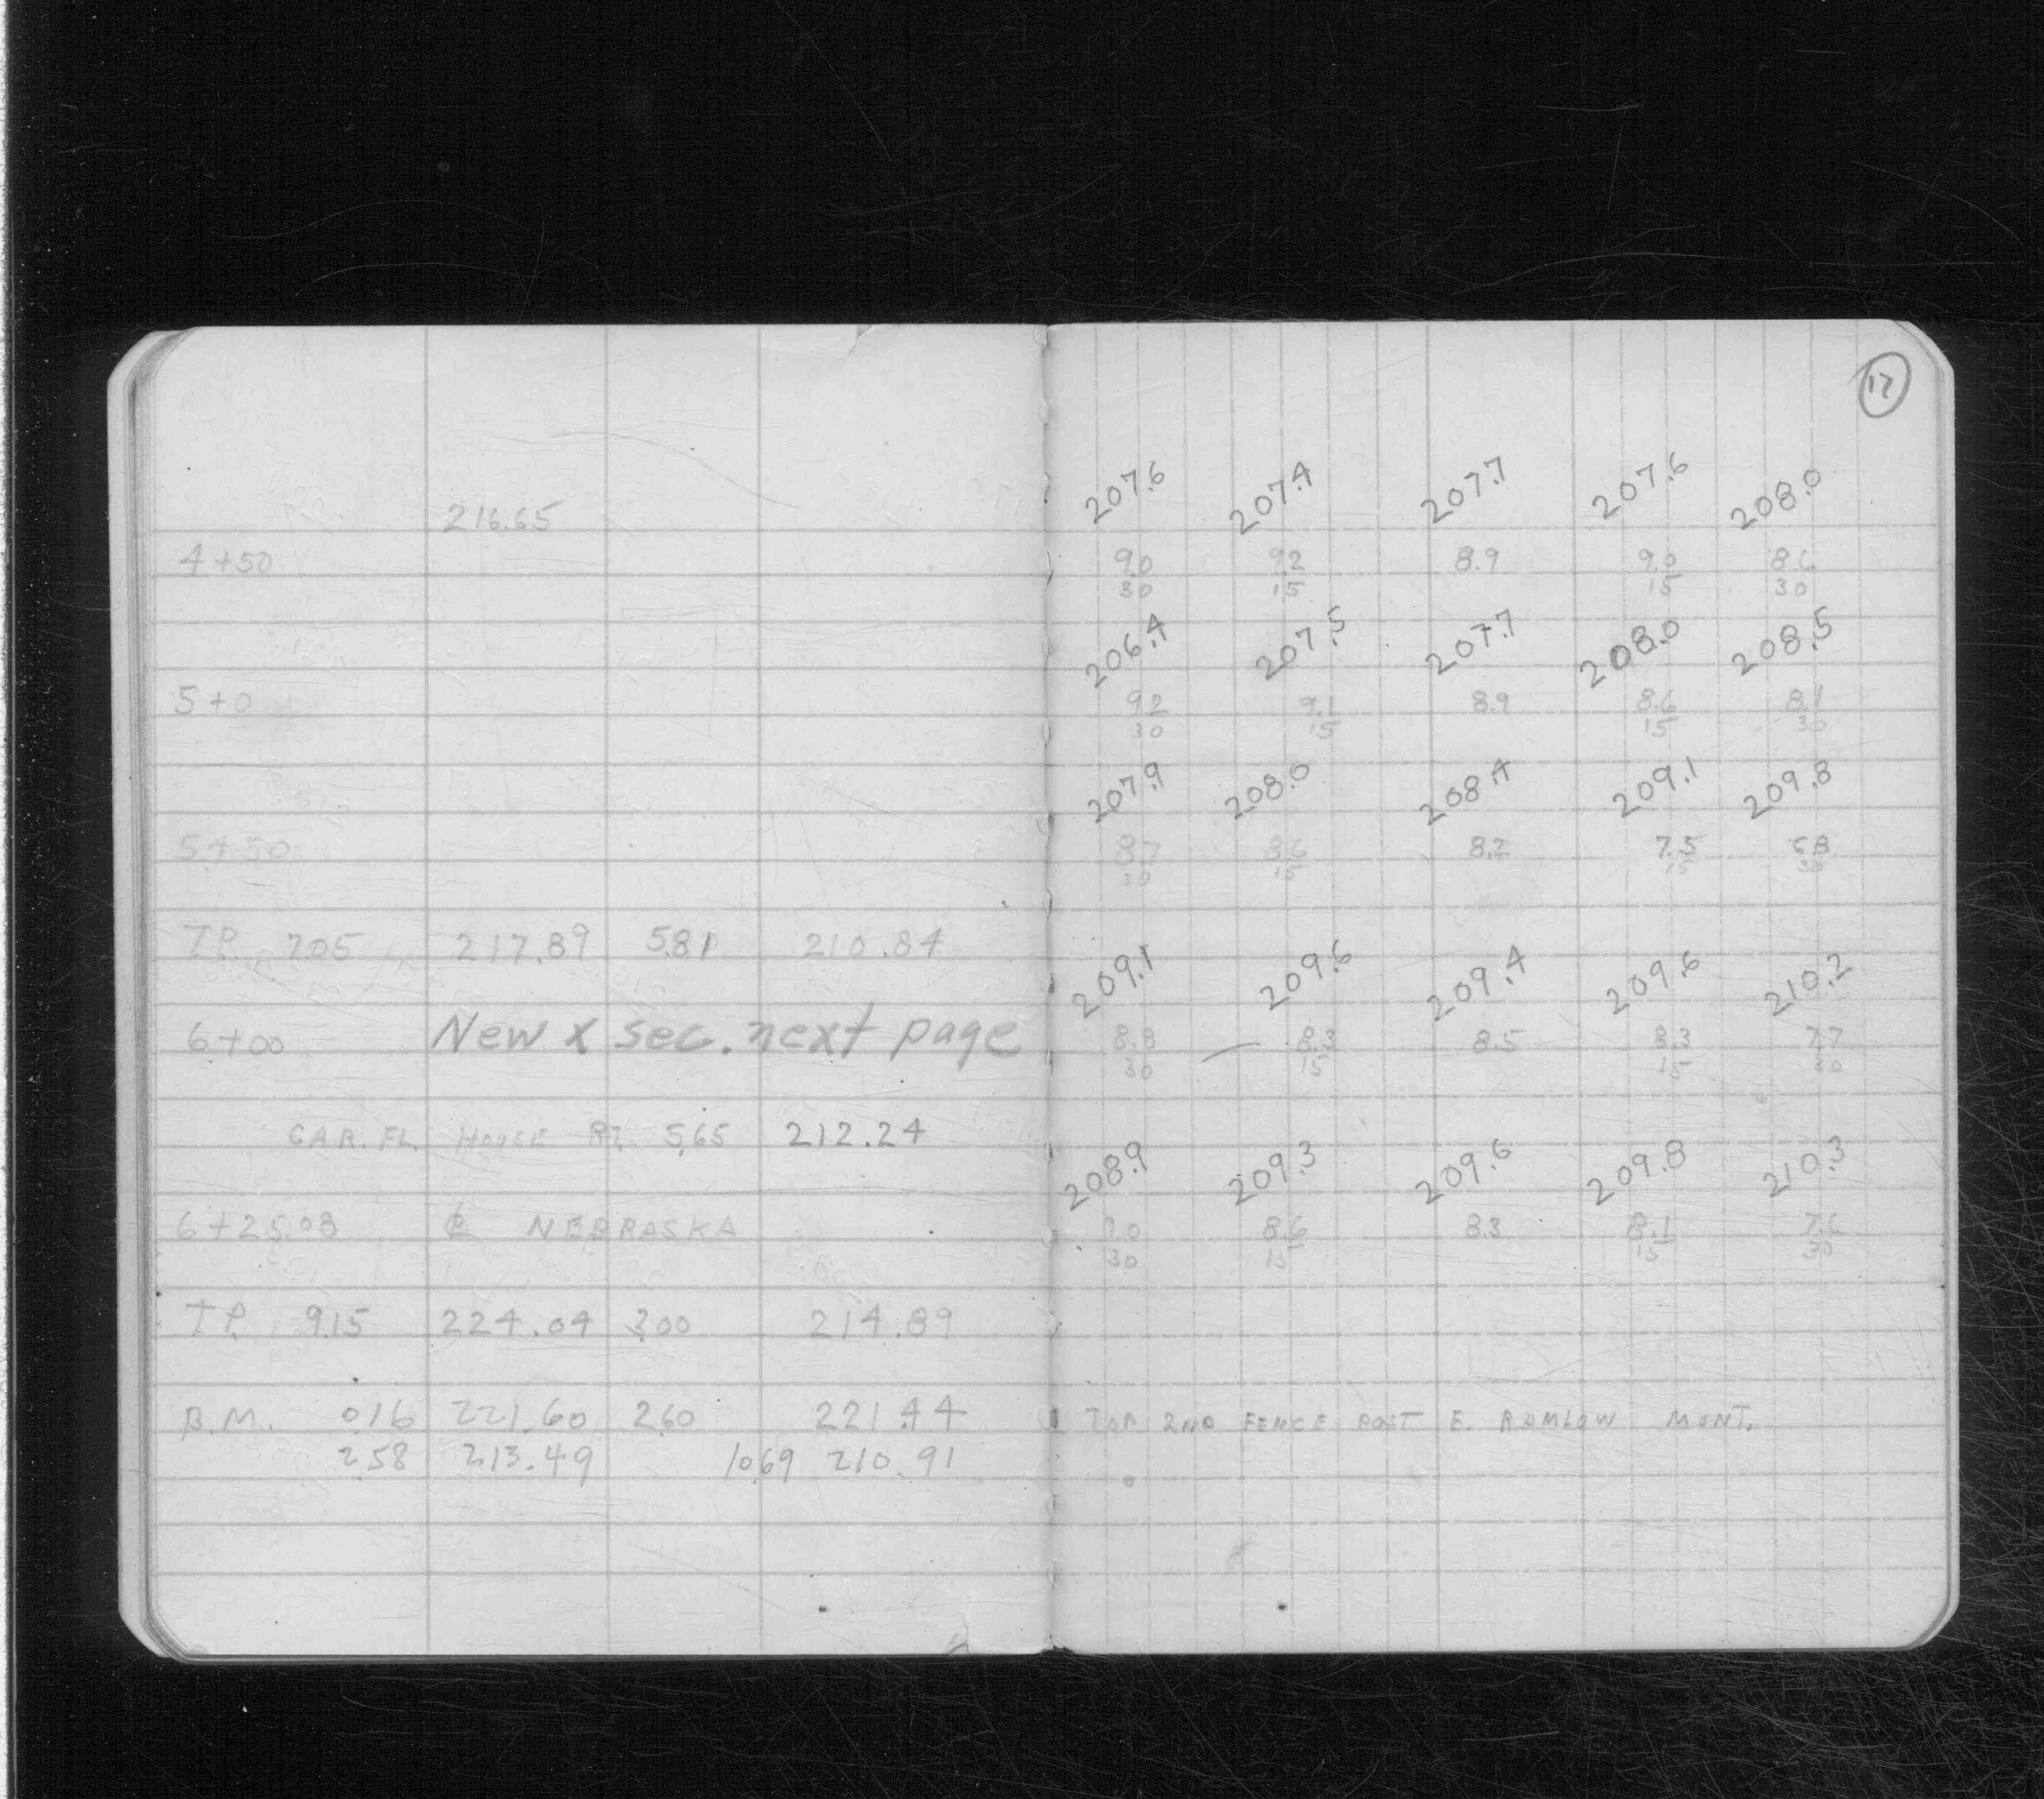 17
207.6 207.4 207.7 207.6 208.0
216.65
4+50 9.0 9.2 8.9 9.0 8.6
30 15 15 30
206.4 207.5 207.7 208.0 208.5
5+0 9.2 9.1 8.9 8.6 8.1
30 15 15 30
207.9 208.0 208.4 209.1 209.8
5+50 8.7 8.6 8.2 7.5 6.8
30 15 15 30
T.P. 7.05 217.89 5.81 210.84
209.1 209.6 209.4 209.6 210.2
6+00 New x sec. next page 8.8 8.3 8.5 8.3 7.7
30 15 15 30
GAR. FL. HOUSE RT. 5.65 212.24
208.9 209.3 209.6 209.8 210.3
6+25.08 ℄ NEBRASKA 9.0 8.6 8.3 8.1 7.6
30 15 15 30
T.P. 9.15 224.04 3.00 214.89
B.M. 0.16 221.60 2.60 221.44 TOP 2ND FENCE POST E. MONT.
2.58 213.49 10.69 210.91